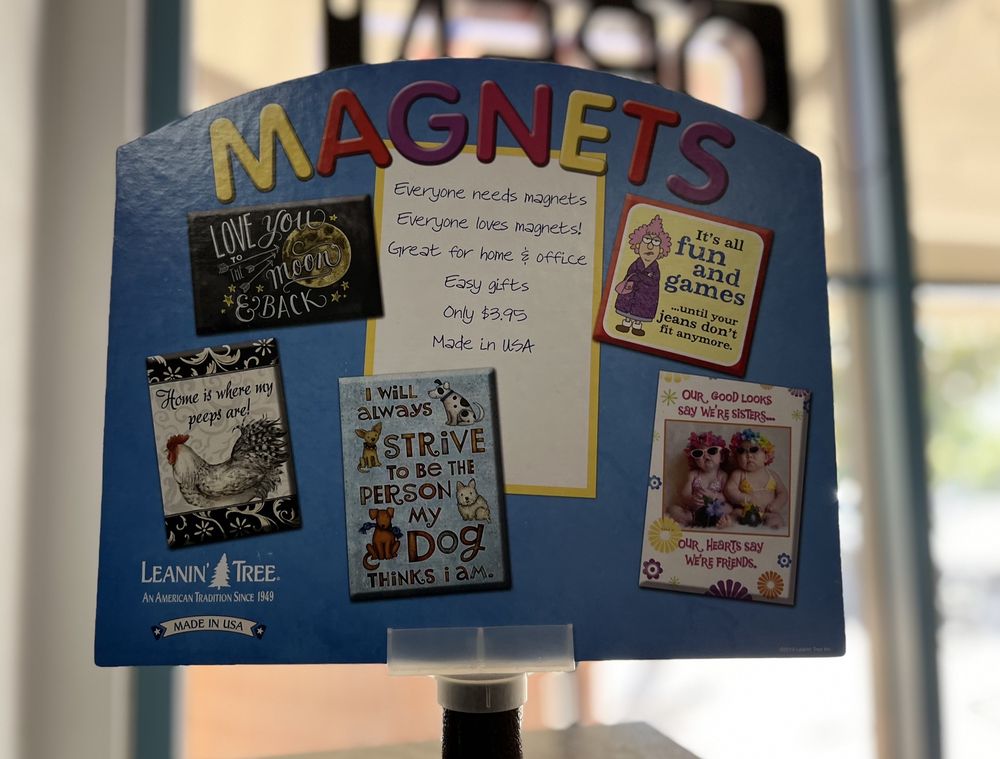 OPEN
MAGNETS
Everyone needs magnets
Everyone loves magnets!
Great for home & office
Easy gifts
Only $3.95
Made in USA
LOVE YOU
TO
THE moon
& BACK
It's all
fun
and
games
...until your
jeans don't
fit anymore.
Home is where my
peeps are!
I WILL
always
STRIVE
TO BE THE
PERSON
MY
DOG
THINKS i am.
OUR GOOD LOOKS
SAY WE'RE SISTERS...
OUR HEARTS SAY
WE'RE FRIENDS.
LEANIN' TREE
AN AMERICAN TRADITION SINCE 1949
MADE IN USA